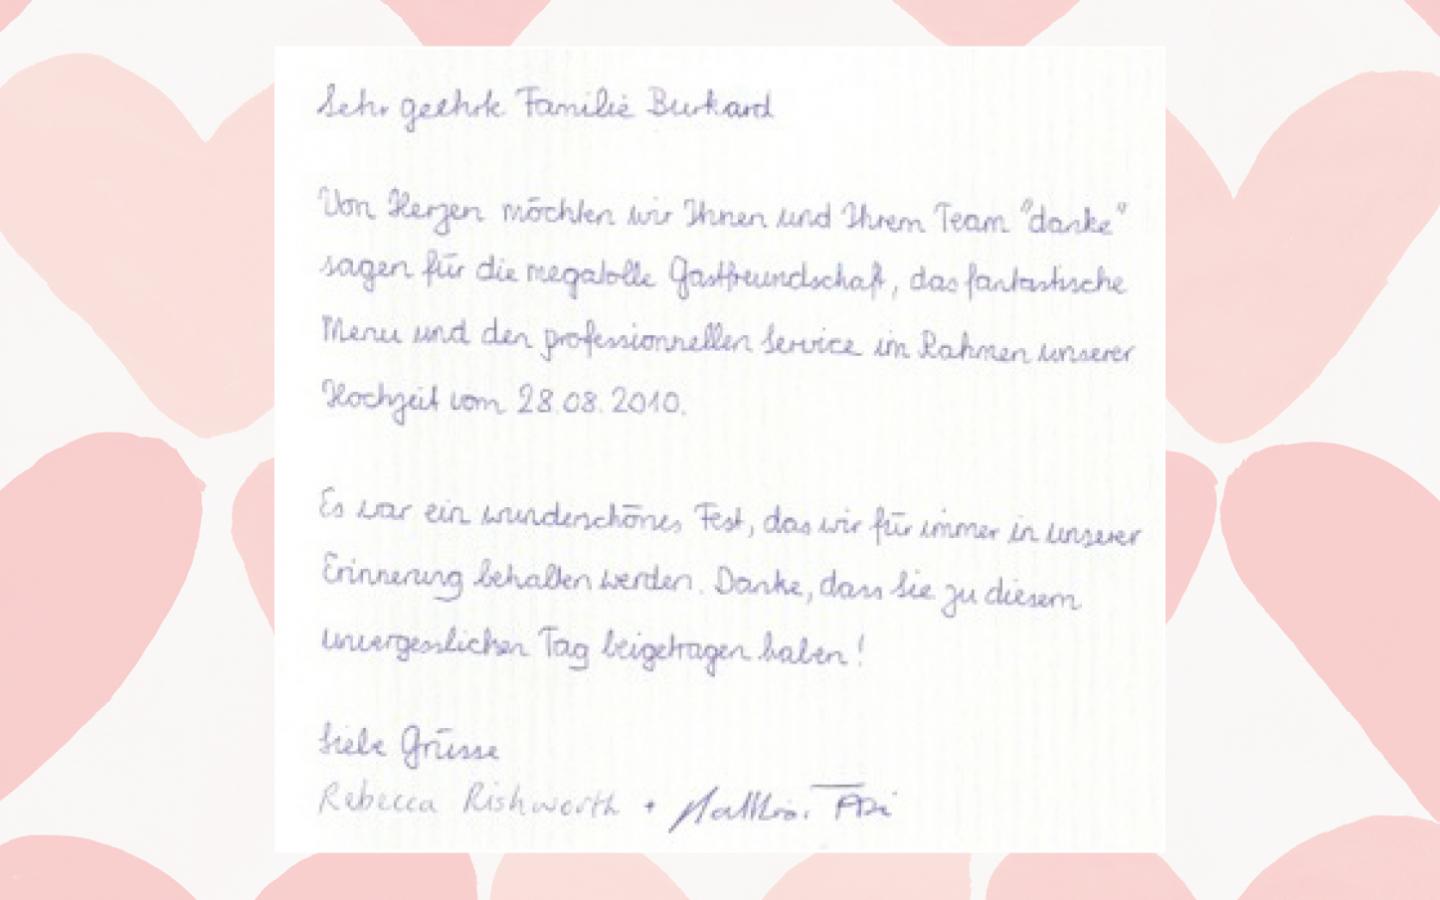 Sehr geehrte Familie Burkard
Von Herzen möchten wir Ihnen und Ihrem Team "danke"
sagen für die megatolle Gastfreundschaft, das fantastische
Menu und den professionnellen Service im Rahmen unserer
Hochzeit vom 28.08.2010.
Es war ein wunderschönes Fest, das wir für immer in unserer
Erinnerung behalten werden. Danke, dass Sie zu diesem
unvergesslichen Tag beigetragen haben!
Liebe Grüsse
Rebecca Rishworth +